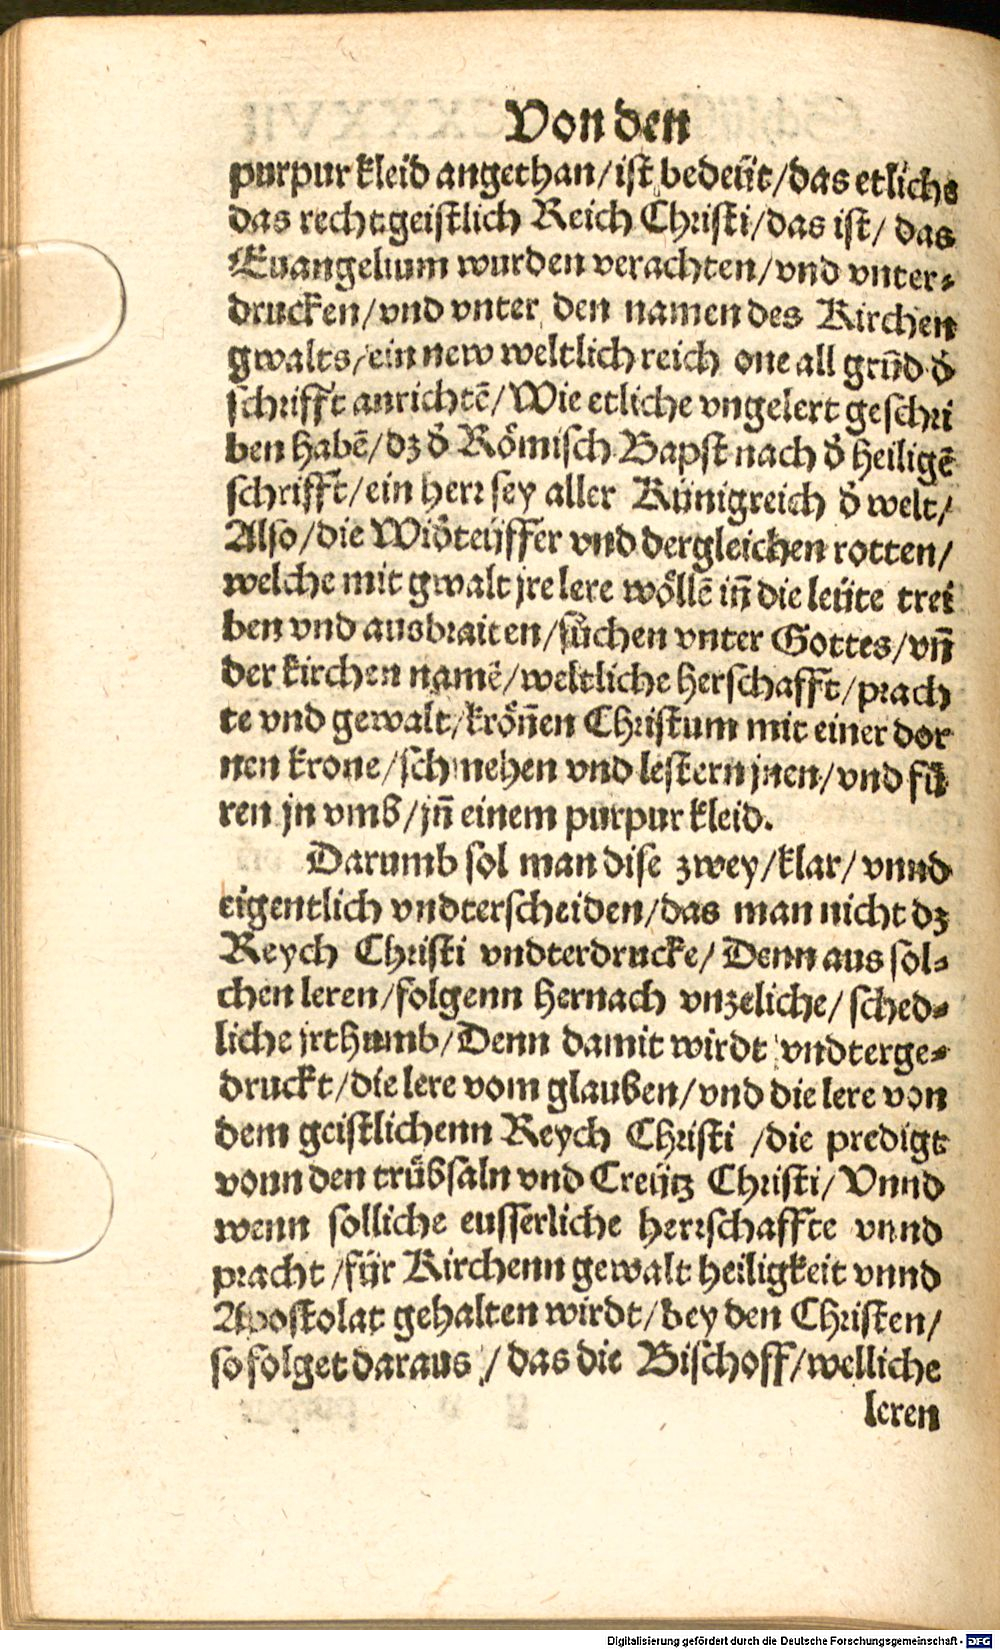 Von den
purpur kleid angethan/ist bedeüt/das etliche
das recht geistlich Reich Christi/das ist/ das
Euangelium wurden verachten/vnd vnter⸗
drucken/vnd vnter den namen des Kirchen
gwalts/ein new weltlich reich one all grūd d̕
schrifft anrichtē/Wie etliche vngelert geschri
ben habē/dz d̕ Rŏmisch Bapst nach d̕ heiligē
schrifft/ein herr sey aller Künigreich d̕ welt/
Also/die Wid̕teüffer vnd dergleichen rotten/
welche mit gwalt jre lere wöllē iñ die leüte trei
ben vnd ausbraiten/sůchen vnter Gottes/vñ
der kirchen namē/weltliche herschafft/prach
te vnd gewalt/kröñen Christum mit einer dor
nen krone/schmehen vnd lestern jnen/vnd fü
ren jn vmb/jñ einem purpur kleid.
Darumb sol man dise zwey/klar/ vnnd
eigentlich vndterscheiden/das man nicht dz
Reych Christi vndterdrucke/ Denn aus sol⸗
chen leren/folgenn hernach vnzeliche/ sched⸗
liche jrthumb/Denn damit wirdt vndterge⸗
druckt/die lere vom glauben/vnd die lere von
dem geistlichenn Reych Christi /die predigt
vonn den trübsaln vnd Creütz Christi/ Vnnd
wenn solliche eusserliche herrschaffte vnnd
pracht /für Kirchenn gewalt heiligkeit vnnd
Apostolat gehalten wirdt/bey den Christen/
so folget daraus / das die Bischoff/welliche
leren
Digitalisierung gefördert durch die Deutsche Forschungsgemeinschaft - DFG